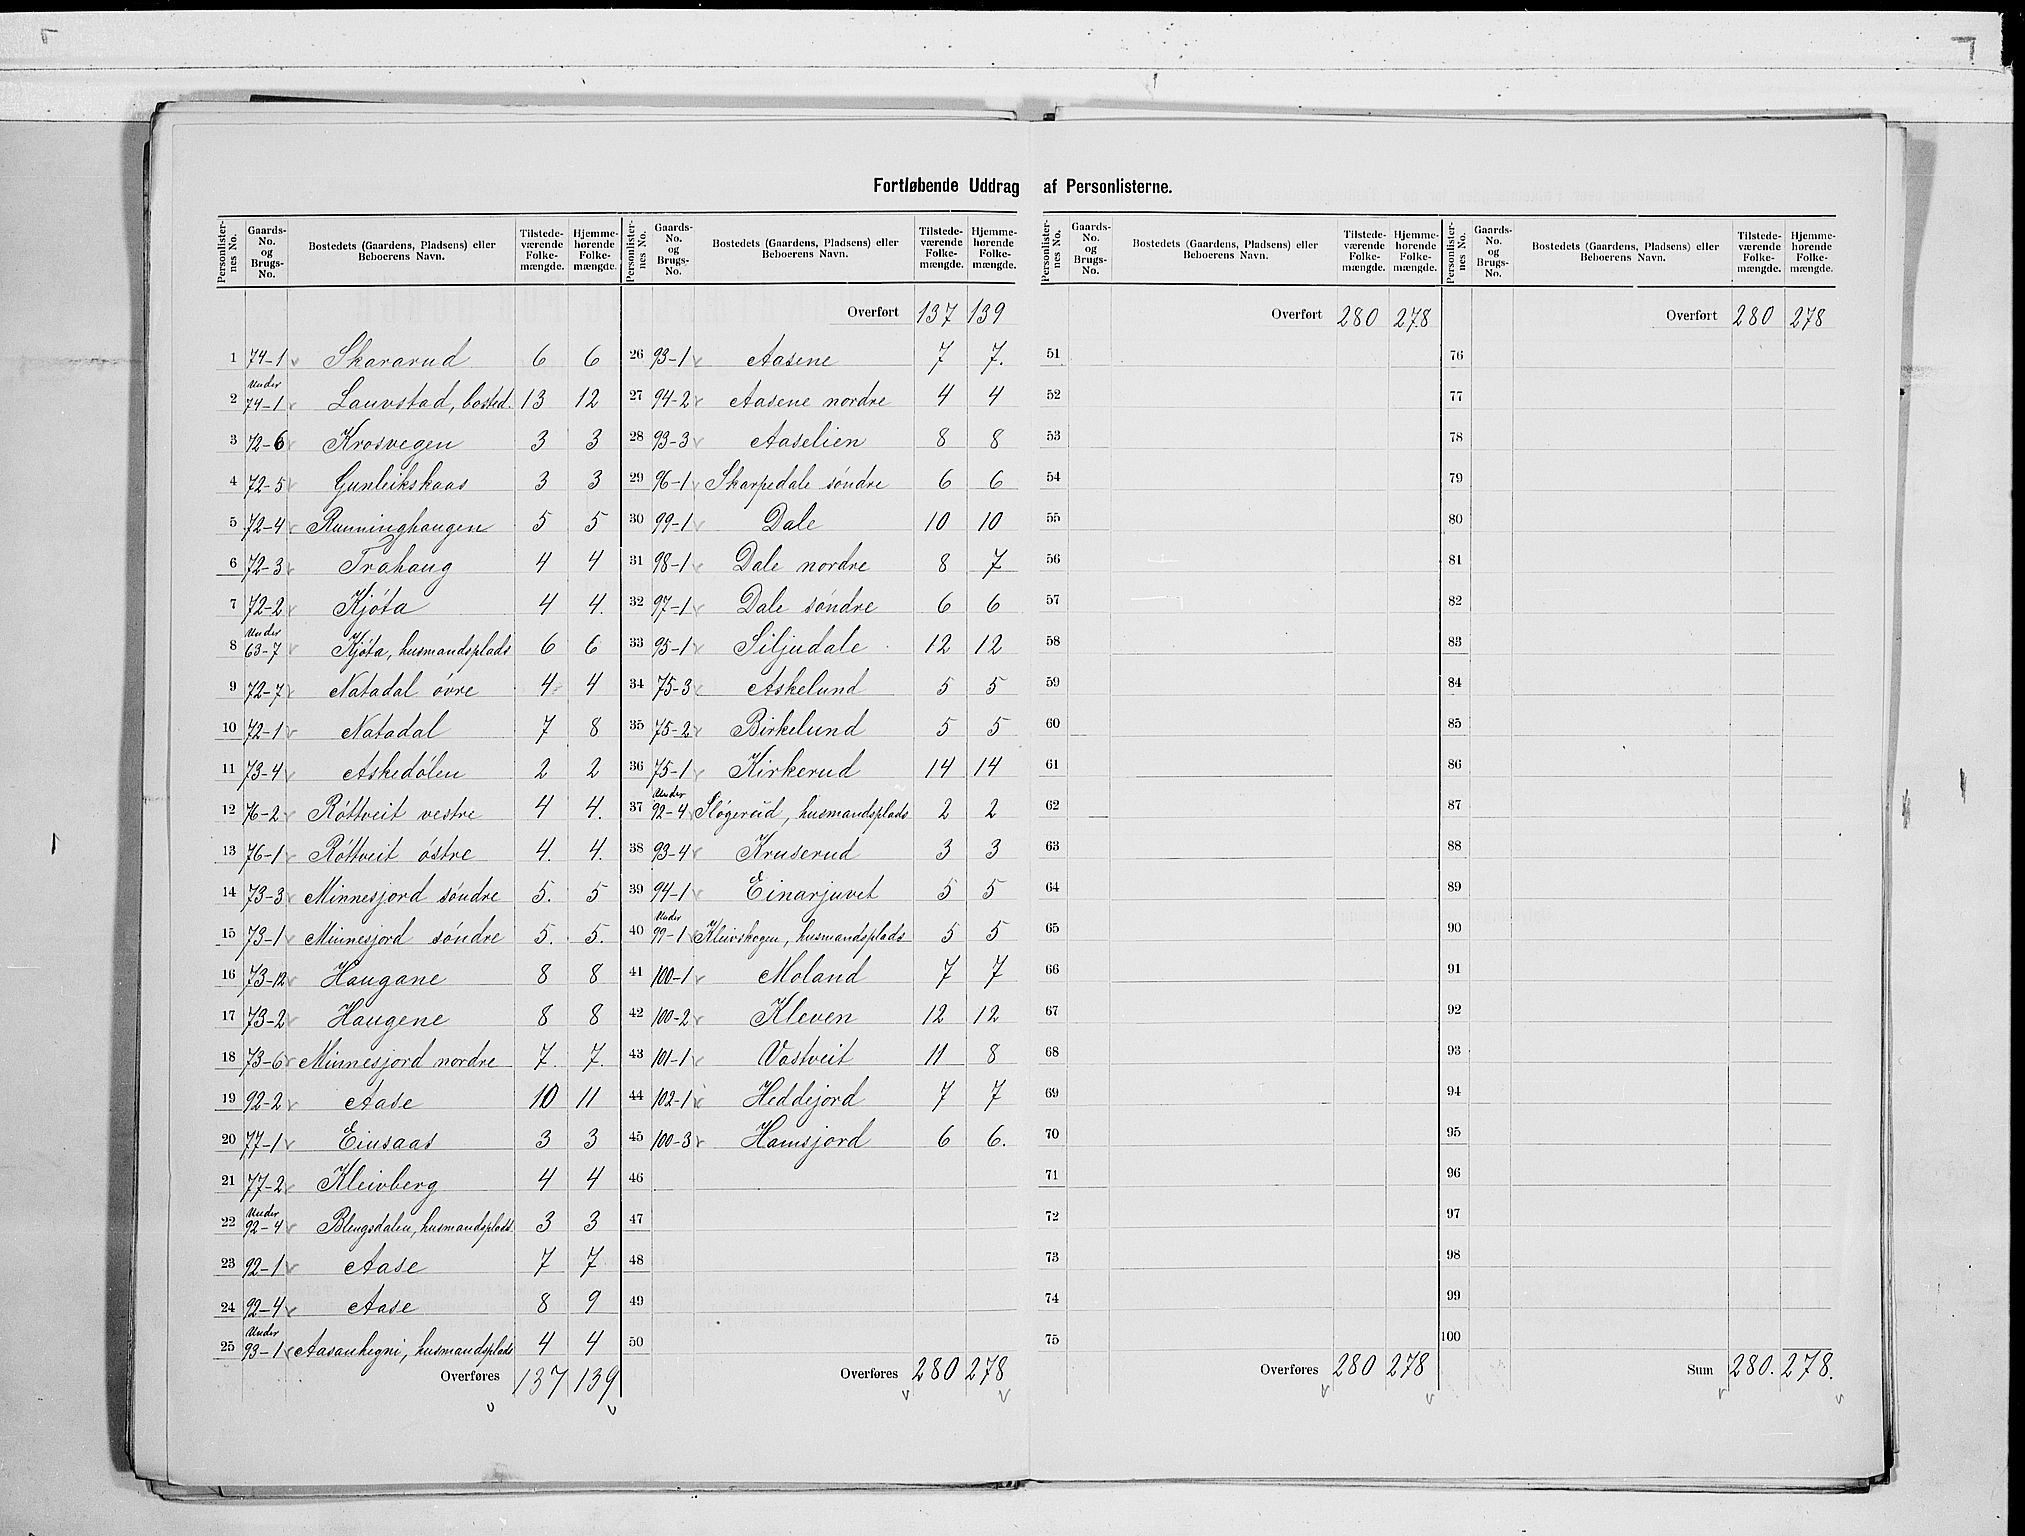 Fortløbende Uddrag af Personlisterne.
Personlister-nes No. Gaards-No. og Brugs-No. Bostedets (Gaardens, Pladsens) eller Beboerens Navn. Tilstede-værende Folke-mængde. Hjemme-hørende Folke-mængde.
1 74-1 Skararud 6 6
2 Under 74-1 Lauvstad, bosted. 13 12
3 72-6 Krosvegen 3 3
4 72-5 Gunleikskaas 3 3
5 72-4 Runninghaugen 5 5
6 72-3 Trahaug 4 4
7 72-2 Kjøta 4 4.
8 Under 63-7 Kjøta, husmandsplads 6 6
9 72-7 Natadal øvre 4 4
10 72-1 Natadal 7 8
11 73-4 Askedølen 2 2
12 76-2 Røttveit vestre 4 4.
13 76-1 Røttveit østre 4. 4.
14 73-3 Minnesjord søndre 5. 5
15 73-1 Minnesjord søndre 5. 5.
16 73-12 Haugane 8 8
17 73-2 Haugene 8 8
18 73-6 Minnesjord nordre 7. 7.
19 92-2 Aase 10 11
20 77-1 Einsaas 3 3
21 77-2 Kleivberg 4 4
22 Under 92-4 Blengsdalen, husmandsplads 3 3
23 92-1 Aase 7 7
24 92-4 Aase 8 9
25 Under 93-1 Aasanhegni, husmandsplads 4 4
Overføres 137 139
Personlister-nes No. Gaards-No. og Brugs-No. Bostedets (Gaardens, Pladsens) eller Beboerens Navn. Tilstede-værende Folke-mængde. Hjemme-hørende Folke-mængde.
Overført 137 139
26 93-1 Aasene 7 7.
27 94-2 Aasene nordre 4 4
28 93-3 Aaselien 8 8
29 96-1 Skarpedale søndre 6 6
30 99-1 Dale 10 10
31 98-1 Dale nordre 8 7
32 97-1 Dale søndre 6 6
33 95-1 Siljudale 12 12
34 75-3 Askelund 5 5
35 75-2 Birkelund 5 5
36 75-1 Kirkerud 14 14
37 Under 92-4 Sløgerud, husmandsplads 2 2
38 93-4 Kruserud 3 3
39 94-1 Einarjuvet 5 5
40 Under 99-1 Kleivskogen, husmandsplads 5 5
41 100-1 Moland 7 7
42 100-2 Kleven 12 12
43 101-1 Vastveit 11 8
44 102-1 Heddejord 7 7
45 100-3 Hamsjord 6 6.
46
47
48
49
50
Overføres 280 278
Personlister-nes No. Gaards-No. og Brugs-No. Bostedets (Gaardens, Pladsens) eller Beboerens Navn. Tilstede-værende Folke-mængde. Hjemme-hørende Folke-mængde.
Overført 280 278
51
52
53
54
55
56
57
58
59
60
61
62
63
64
65
66
67
68
69
70
71
72
73
74
75
Overføres 280 278
Personlister-nes No. Gaards-No. og Brugs-No. Bostedets (Gaardens, Pladsens) eller Beboerens Navn. Tilstede-værende Folke-mængde. Hjemme-hørende Folke-mængde.
Overført 280 278
76
77
78
79
80
81
82
83
84
85
86
87
88
89
90
91
92
93
94
95
96
97
98
99
100
Sum 280. 278.